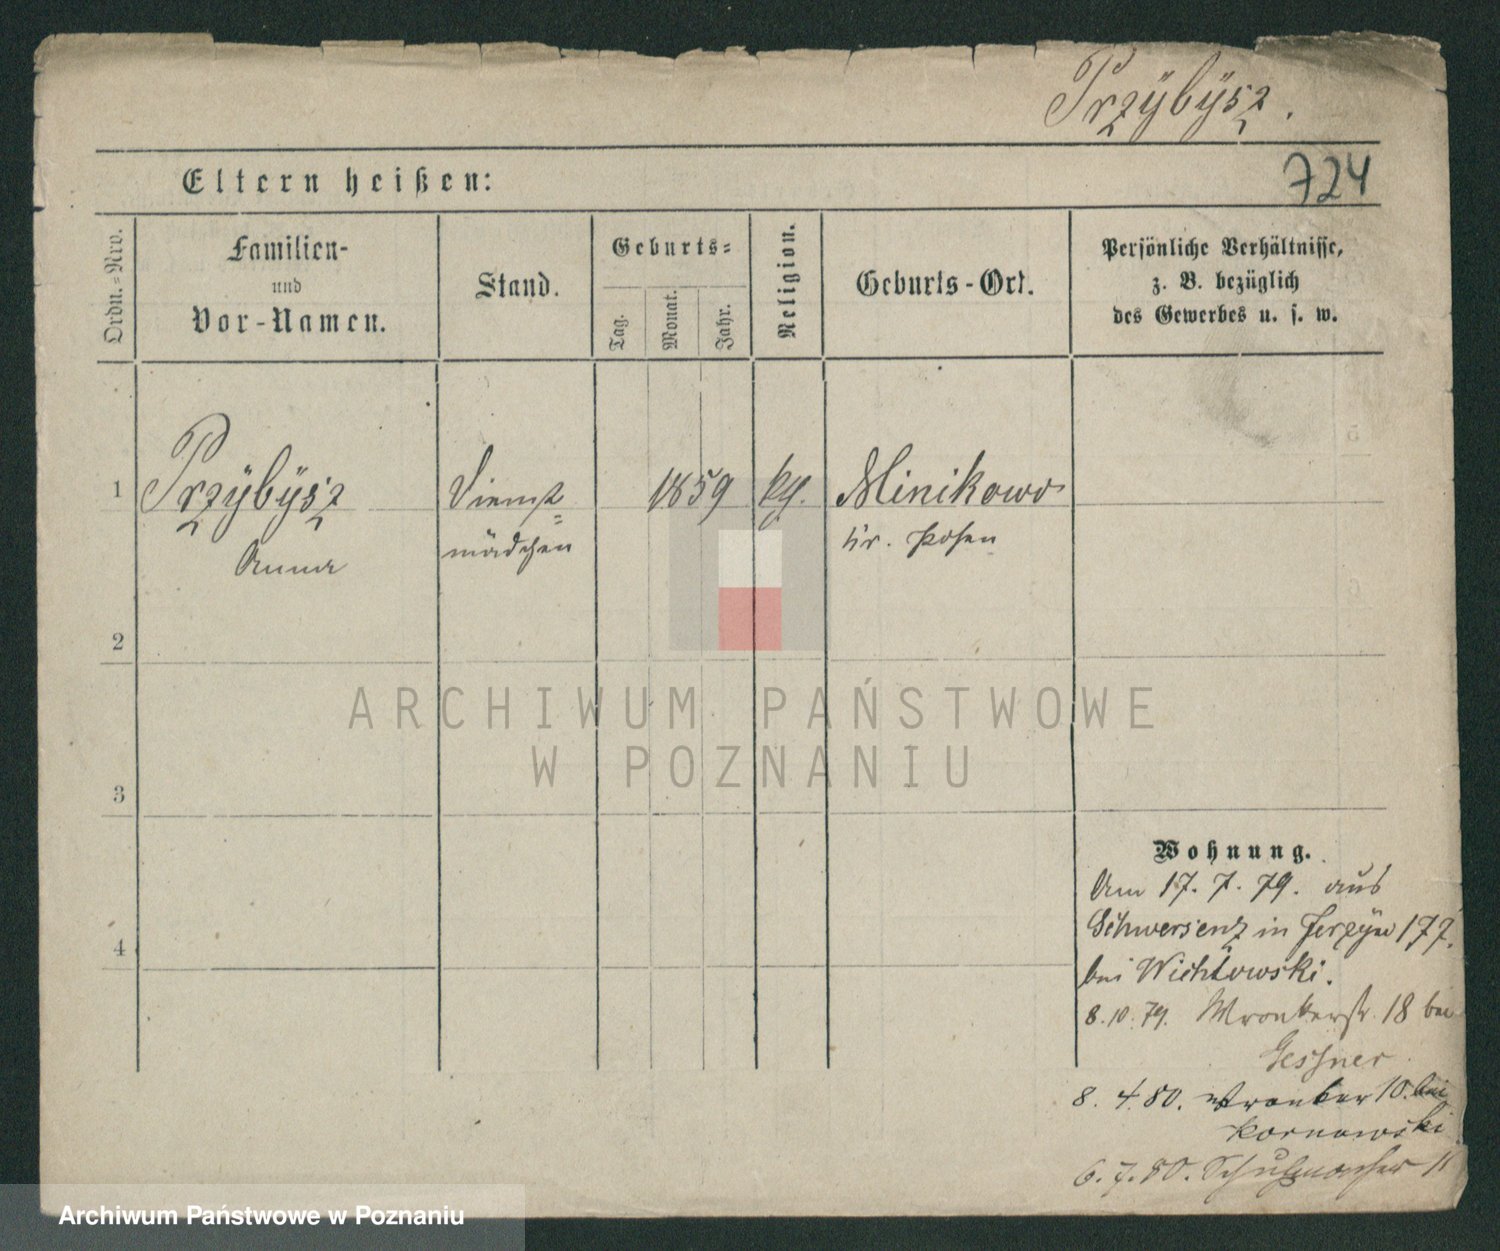 Przÿbÿsz.
724
Eltern heißen:
Ordn.-Nro.
Familien-
und
Vor-Namen.
Stand.
Geburts-
Tag.
Monat.
Jahr.
Religion.
Geburts-Ort.
Persönliche Verhältnisse,
z. B. bezüglich
des Gewerbes u. s. w.
1
Przÿbÿsz
Anna
Dienst=
mädchen
1859
kth.
Minikowo
Kr. Posen
2
3
4
ARCHIWUM PAŃSTWOWE
W POZNANIU
Wohnung.
Am 17. 7. 79. aus
Schwersenz in Jerzÿce 177.
bei Wichlowski.
8. 10. 79. Wronkerstr. 18 bei
Gessner
8. 4. 80. Wronker 10. bei
Kornowski
6. 7. 80. Schuhmacher 11
Archiwum Państwowe w Poznaniu